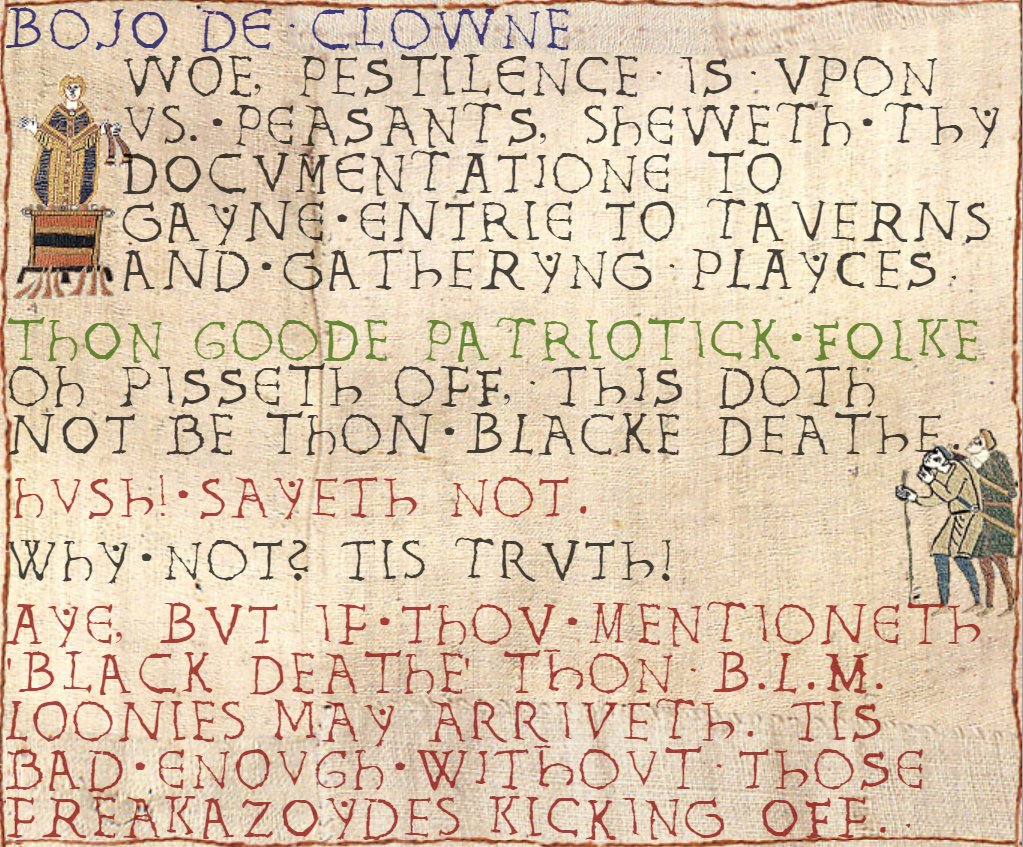 BOJO DE · CLOWNE
WOE, PESTILENCE · IS · VPON
VS. · PEASANTS, ShEWETh · ThY
DOCVMENTATIONE TO
GAYNE · ENTRIE TO TAVERNS
AND · GAThERYNG · PLAYCES.
ThON GOODE PATRIOTICK · FOLKE
Oh PISSETh OFF, · ThIS DOTh
NOT BE ThON · BLACKE DEAThE.
hVSh! · SAYETh NOT.
WhY · NOT? TIS TRVTh!
AYE, BVT IF · ThOV · MENTIONETh
'BLACK DEAThE' ThON · B.L.M.
LOONIES MAY ARRIVETh. TIS
BAD · ENOVGh · WIThOVT · ThOSE
FREAKAZOYDES KICKING OFF. ·